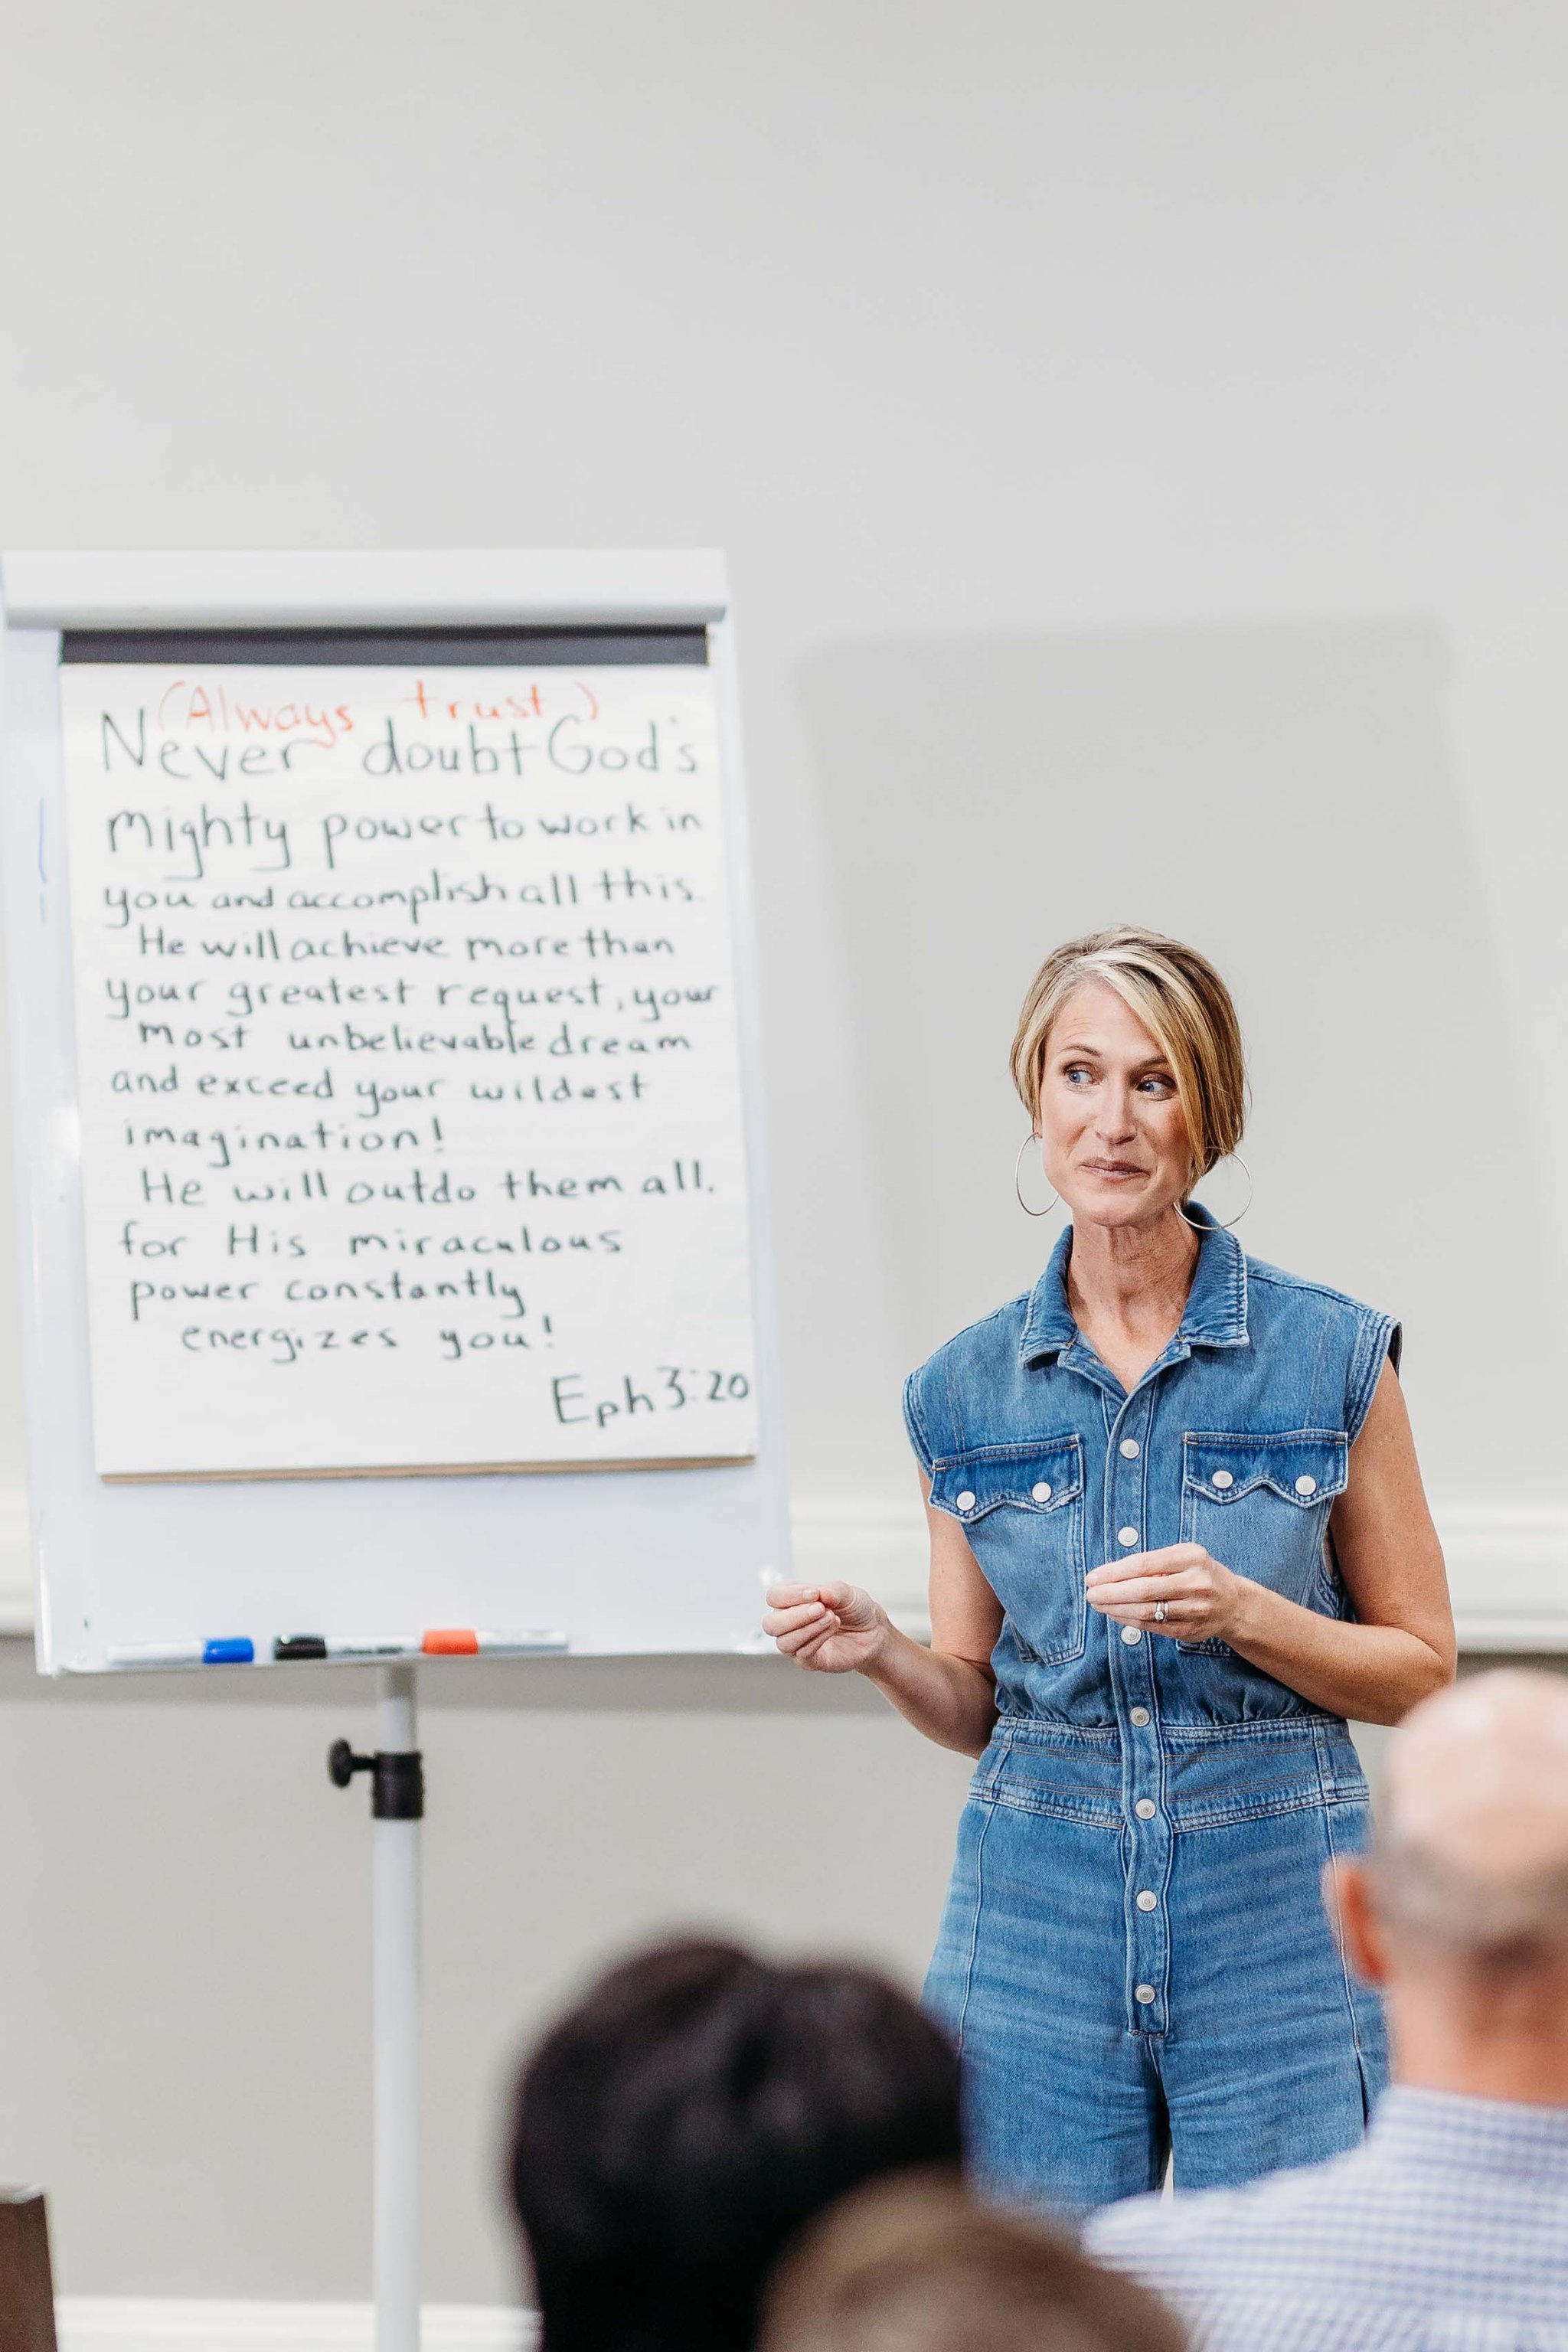 (Always trust)
Never doubt God's
Mighty power to work in
you and accomplish all this.
He will achieve more than
your greatest request, your
most unbelievable dream
and exceed your wildest
imagination!
He will outdo them all.
for His miraculous
power constantly
energizes you!
Eph 3:20